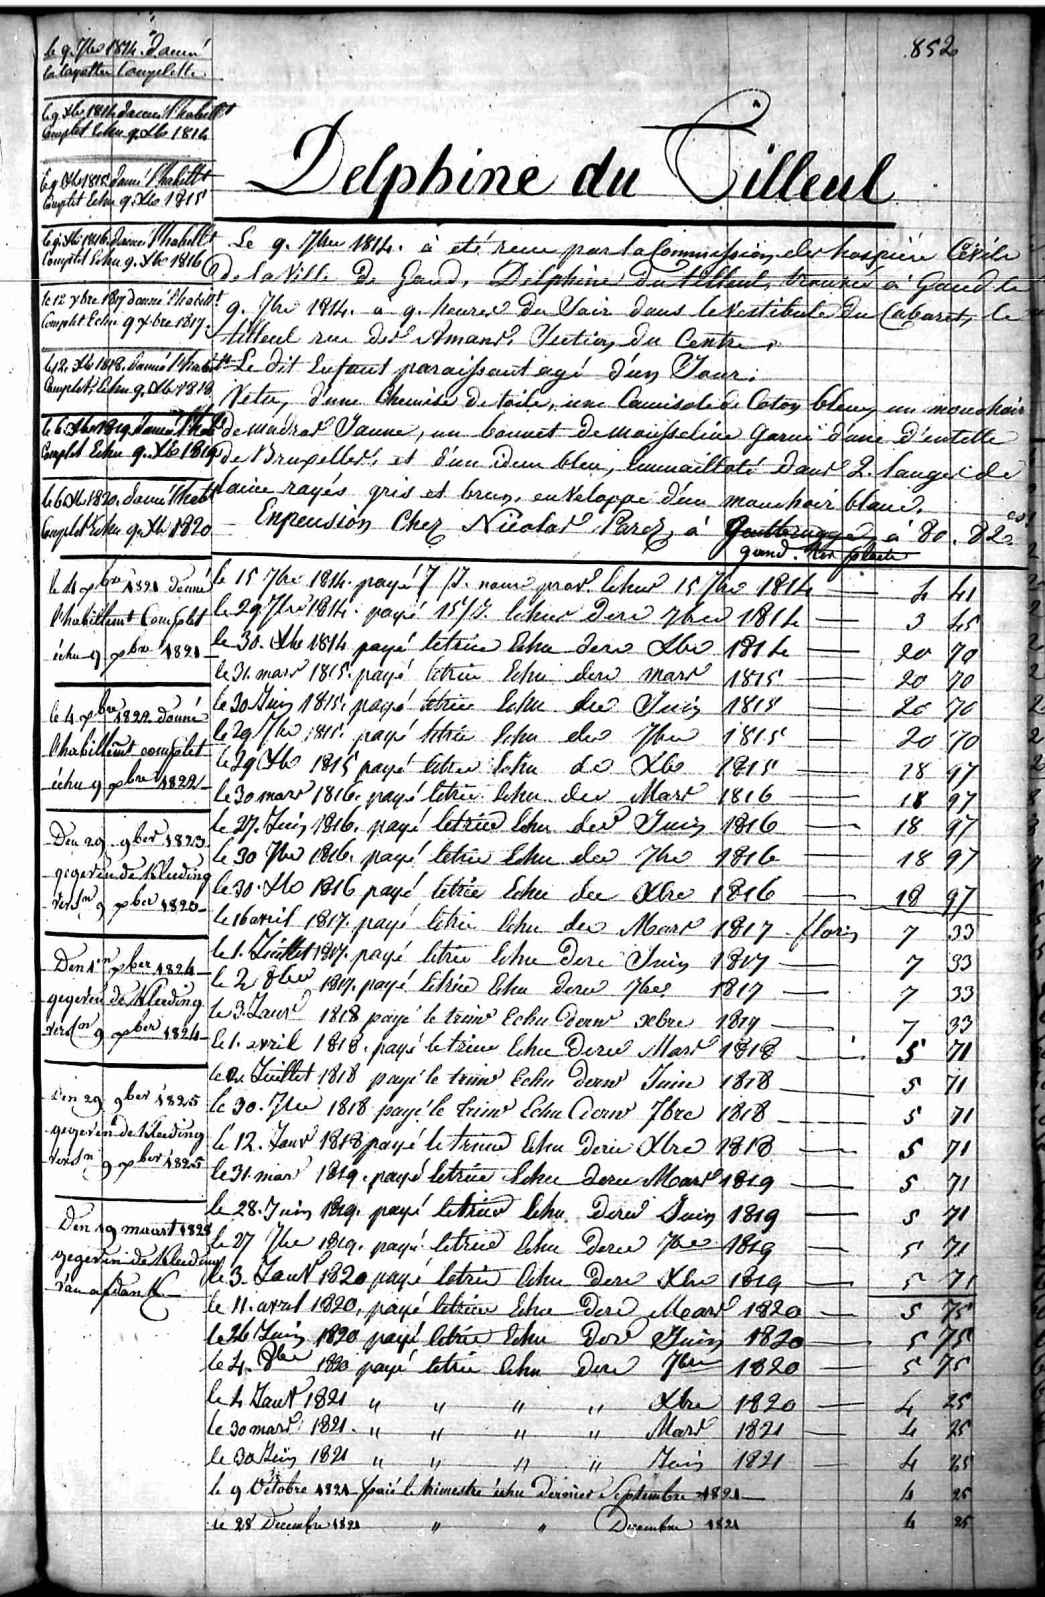 852
le 9. 7bre 1814. Donné
la layette Complette.
le 9. Xbre 1814 Donné l'habillt
Complet Echu 9. Xbre 1814
le 9 Xbre 1815 Donné l'habillt
Complet Echu 9. Xbre 1815
le 9. Xbre 1816. Donné l'habillt
Complet Echu 9. Xbre 1816
le 12 xbre 1817 donné l'habillt
Complet Echu 9 xbre 1817.
le 12. Xbre 1818. Donné l'habillt
Complet, Echu 9. Xbre 1818
le 6 Xbre 1819. Donné l'hab
Complet Echu 9. Xbre 1819
le 6 Xbre 1820. Donné l'habt
Complet Echu 9. Xbre 1820
le 4 xbre 1821 donné
l'habillemt Complet
échu 9 xbre 1821
le 4 xbre 1822 donné
l'habillemt complet
échu 9 xbre 1822
Den 29 9ber 1823
gegeven de kleeding
versn 9 xber 1823
Den 1en xber 1824
gegeven de kleeding
versen 9 xber 1824
Den 29 9ber 1825
gegeven de kleeding
versn 9 xber 1825
Den 19 maart 1828
gegeven de kleeding
van
Delphine du Tilleul
Le 9. 7bre 1814. a été reçu par la Commission des hospices Civils
de la Ville de Gand, Delphine Du tilleul, trouvée à Gand le
9. 7bre 1814. a 9. heures du Soir dans le Vestibule du Cabaret, le
tilleul rue des Amans, Section du Centre.
Le dit Enfant paraissant agé d'un Jour.
Vetu, d'une Chemise de toile, une Camisole de Coton bleu, un mouchoir
de madras Jaune, un bonnet de mousseline garni d'une D'entelle
de Bruxelles, et d'un idem bleu, Emmailloté dans 2. langes de
laine rayés gris et brun, enveloppé d'un mouchoir blanc.
Enpension Chez Nicolas Parez, à à 80. 82
le 15 7bre 1814. payé 7 /J. nour prov. Echus 15 7bre 1814 4 41
le 29 7bre 1814. payé 15 /J. Echus dere 7bre 1814 3 45
le 30. Xbre 1814 payé letrie Echu dere Xbre 1814 20 70
le 31. mars 1815. payé letrie Echu dere mars 1815 20 70
le 30 Juin 1815. payé letrie Echu der Juin 1815 20 70
le 29 7bre 1815. payé letrie Echu der 7bre 1815 20 70
le 29 Xbre 1815 payé letrie Echu de Xbre 1815 18 97
le 30 mars 1816. payé letrie Echu der Mars 1816 18 97
le 27. Juin 1816. payé letrie Echu der Juin 1816 18 97
le 30 7bre 1816. payé letrie Echu der 7bre 1816 18 97
le 30. Xbre 1816 payé letrie Echu der Xbre 1816 18 97
le 16 avril 1817. payé letrie Echu der Mars 1817 florins 7 33
le 1. Juillet 1817. payé letrie Echu dere Juin 1817 7 33
le 2 8bre 1817. payé letrie Echu dere 7bre 1817 7 33
le 3. Janvr 1818 payé le trimr Echu dernr xbre 1817 7 33
le 1. avril 1818. payé le trime Echu Dere Mars 1818 5 71
le 2. Juillet 1818 payé le trimr Echu dernr Juin 1818 5 71
le 30. 7bre 1818 payé le trimr Echu dernr 7bre 1818 5 71
le 12. Janvr 1818 payé letrime Echu dere Xbre 1818 5 71
le 31. mars 1819. payé letrime Echu dere Mars 1819 5 71
le 28. Juin 1819. payé letrime Echu dere Juin 1819 5 71
le 27 7bre 1819. payé letrime Echu Dere 7bre 1819 5 71
le 3. Janvr 1820 payé letrie Echu Dere Xbre 1819 5 71
le 11. avril 1820, payé letrie Echu Dere Mars 1820 5 75
le 26 Juin 1820 payé letrie Echu Der Juin 1820 5 75
le 4. 8bre 1820 payé letrie Echu dere 7bre 1820 5 75
le 4 Janvr 1821 " " " " Xbre 1820 4 25
le 30 mars 1821. " " " " Mars 1821 4 25
le 30 Juin 1821 " " " " Juin 1821 4 25
le 9 Octobre 1821 paié le trimestre échu dernier Septembre 1821 4 25
le 28 Decembre 1821 " " Decembre 1821 4 25